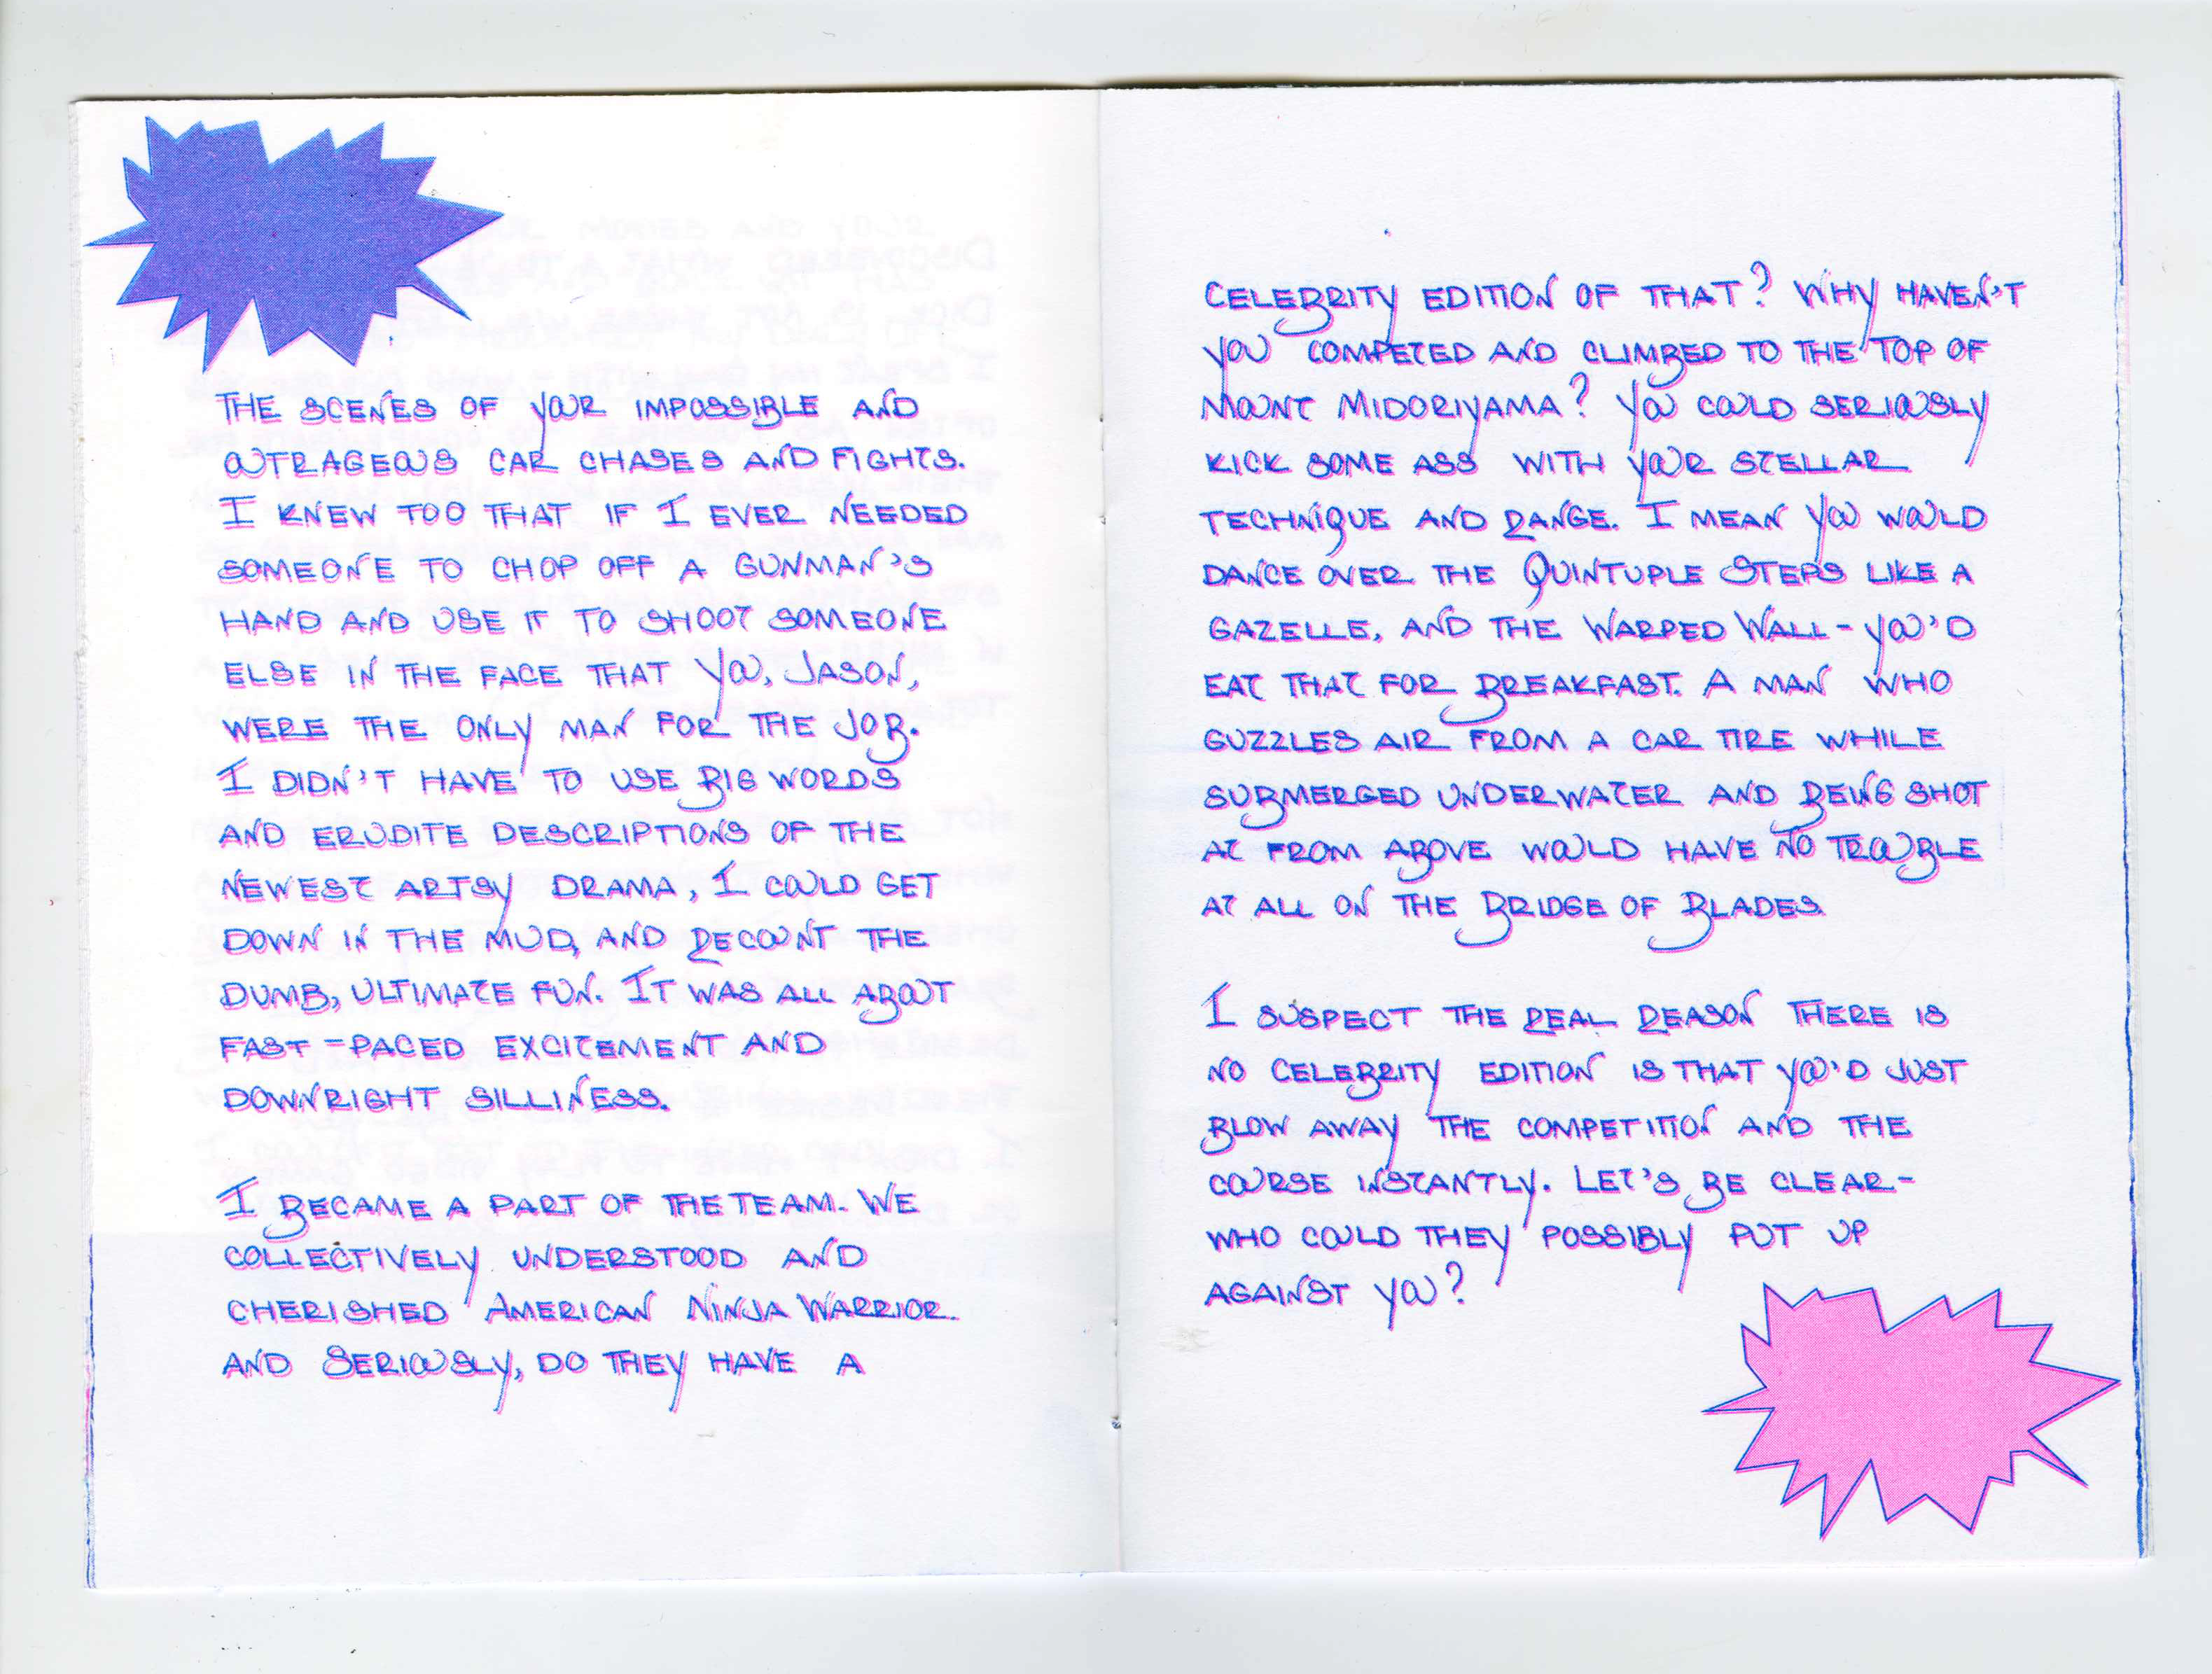 THE SCENES OF YOUR IMPOSSIBLE AND
OUTRAGEOUS CAR CHASES AND FIGHTS.
I KNEW TOO THAT IF I EVER NEEDED
SOMEONE TO CHOP OFF A GUNMAN'S
HAND AND USE IT TO SHOOT SOMEONE
ELSE IN THE FACE THAT YOU, JASON,
WERE THE ONLY MAN FOR THE JOB.
I DIDN'T HAVE TO USE BIG WORDS
AND ERUDITE DESCRIPTIONS OF THE
NEWEST ARTSY DRAMA, I COULD GET
DOWN IN THE MUD, AND RECOUNT THE
DUMB, ULTIMATE FUN. IT WAS ALL ABOUT
FAST-PACED EXCITEMENT AND
DOWNRIGHT SILLINESS.
I BECAME A PART OF THE TEAM. WE
COLLECTIVELY UNDERSTOOD AND
CHERISHED AMERICAN NINJA WARRIOR.
AND SERIOUSLY, DO THEY HAVE A
CELEBRITY EDITION OF THAT? WHY HAVEN'T
YOU COMPETED AND CLIMBED TO THE TOP OF
MOUNT MIDORIYAMA? YOU COULD SERIOUSLY
KICK SOME ASS WITH YOUR STELLAR
TECHNIQUE AND RANGE. I MEAN YOU WOULD
DANCE OVER THE QUINTUPLE STEPS LIKE A
GAZELLE, AND THE WARPED WALL - YOU'D
EAT THAT FOR BREAKFAST. A MAN WHO
GUZZLES AIR FROM A CAR TIRE WHILE
SUBMERGED UNDERWATER AND BEING SHOT
AT FROM ABOVE WOULD HAVE NO TROUBLE
AT ALL ON THE BRIDGE OF BLADES.
I SUSPECT THE REAL REASON THERE IS
NO CELEBRITY EDITION IS THAT YOU'D JUST
BLOW AWAY THE COMPETITION AND THE
COURSE INSTANTLY. LET'S BE CLEAR-
WHO COULD THEY POSSIBLY PUT UP
AGAINST YOU?